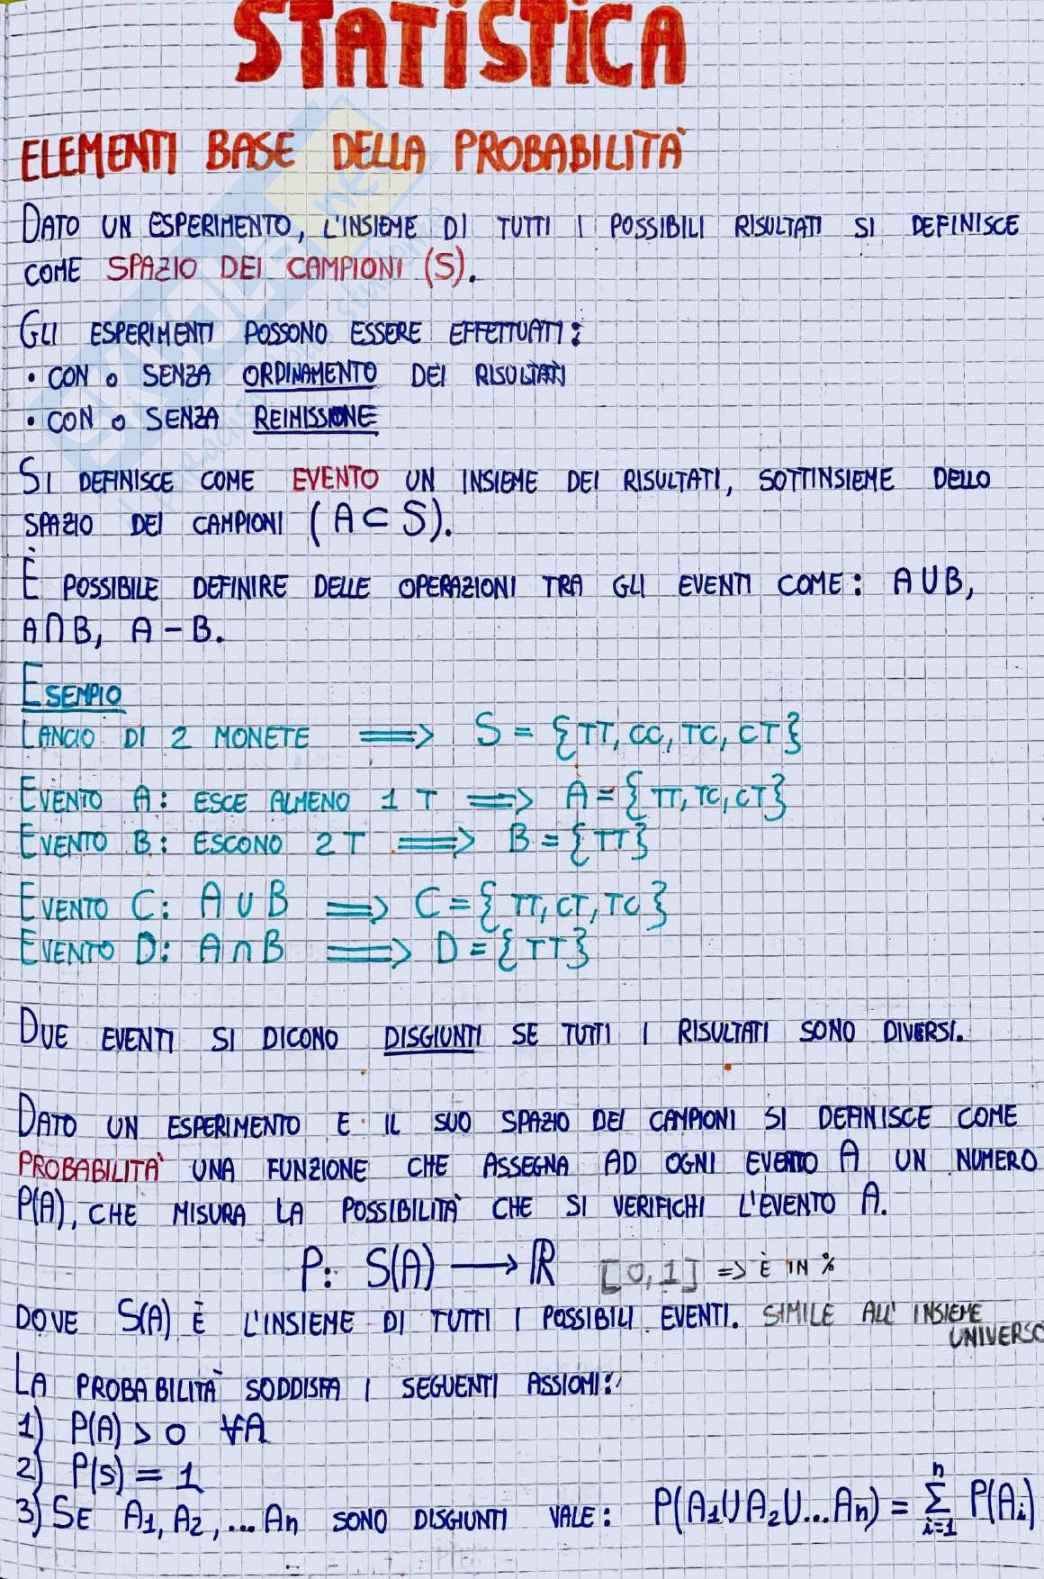 STATISTICA
ELEMENTI BASE DELLA PROBABILITÀ
DATO UN ESPERIMENTO, L'INSIEME DI TUTTI I POSSIBILI RISULTATI SI DEFINISCE
COME SPAZIO DEI CAMPIONI (S).
GLI ESPERIMENTI POSSONO ESSERE EFFETTUATI:
• CON O SENZA ORDINAMENTO DEI RISULTATI
• CON O SENZA REIMISSIONE
SI DEFINISCE COME EVENTO UN INSIEME DEI RISULTATI, SOTTINSIEME DELLO
SPAZIO DEI CAMPIONI (A ⊂ S).
È POSSIBILE DEFINIRE DELLE OPERAZIONI TRA GLI EVENTI COME: A∪B,
A∩B, A-B.
ESEMPIO
LANCIO DI 2 MONETE ⟹ S = {TT, CC, TC, CT}
EVENTO A: ESCE ALMENO 1 T ⟹ A = {TT, TC, CT}
EVENTO B: ESCONO 2T ⟹ B = {TT}
EVENTO C: A ∪ B ⟹ C = {TT, CT, TC}
EVENTO D: A ∩ B ⟹ D = {TT}
DUE EVENTI SI DICONO DISGIUNTI SE TUTTI I RISULTATI SONO DIVERSI.
DATO UN ESPERIMENTO E IL SUO SPAZIO DEI CAMPIONI SI DEFINISCE COME
PROBABILITÀ UNA FUNZIONE CHE ASSEGNA AD OGNI EVENTO A UN NUMERO
P(A), CHE MISURA LA POSSIBILITÀ CHE SI VERIFICHI L'EVENTO A.
P: S(A) ⟶ ℝ [0,1] => È IN %
DOVE S(A) È L'INSIEME DI TUTTI I POSSIBILI EVENTI. SIMILE ALL'INSIEME
UNIVERSO
LA PROBABILITÀ SODDISFA I SEGUENTI ASSIOMI:
1) P(A) > 0 ∀A
2) P(S) = 1
3) SE A₁, A₂, ... An SONO DISGIUNTI VALE: P(A₁∪A₂∪...An) = ∑ⁿᵢ₌₁ P(Aᵢ)